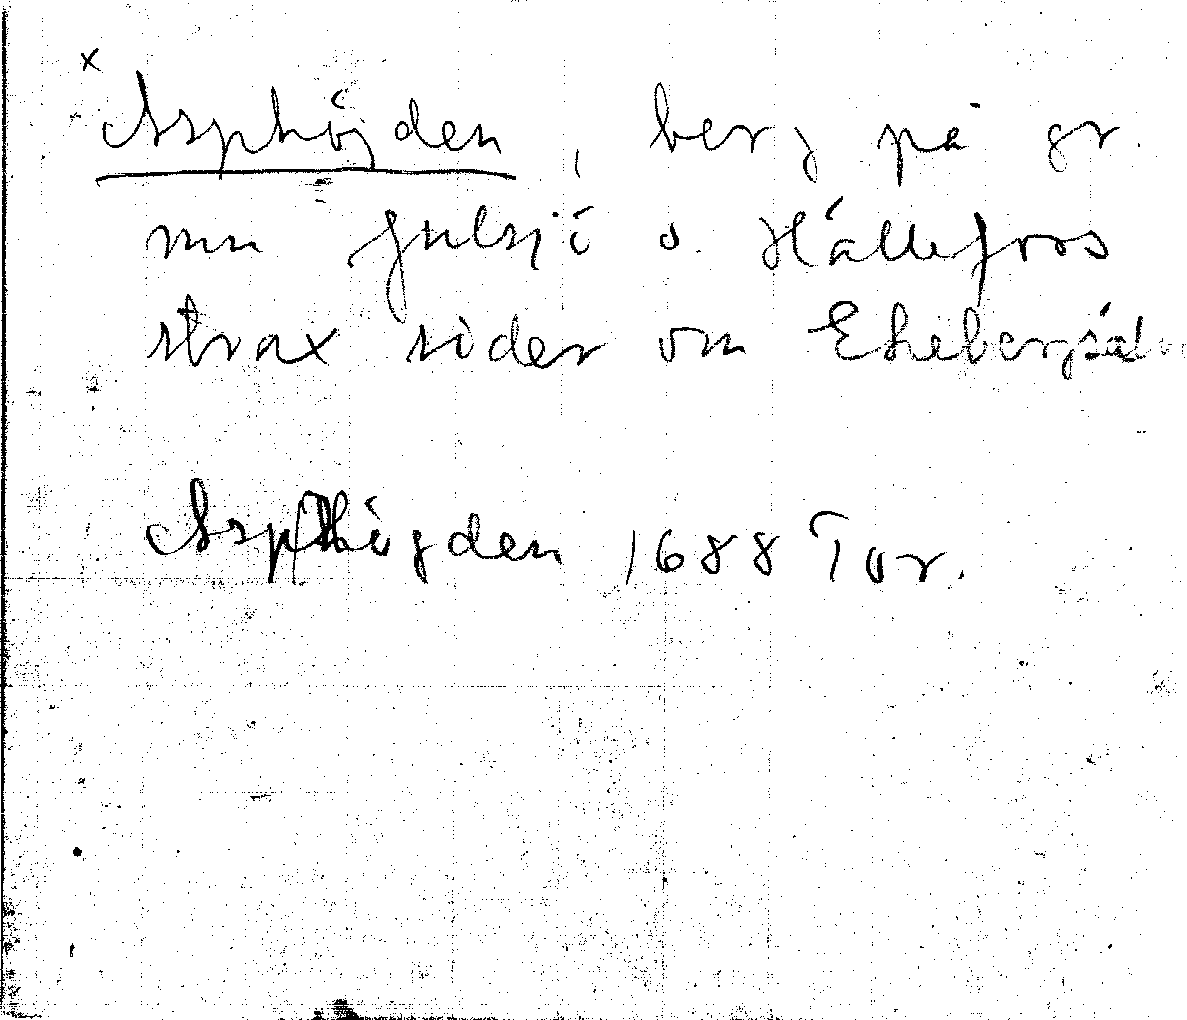 x
Asphöjden, berg på gr.
mn Gulsjö o. Hällefors
strax söder om
Asphögden 1688 Tor.